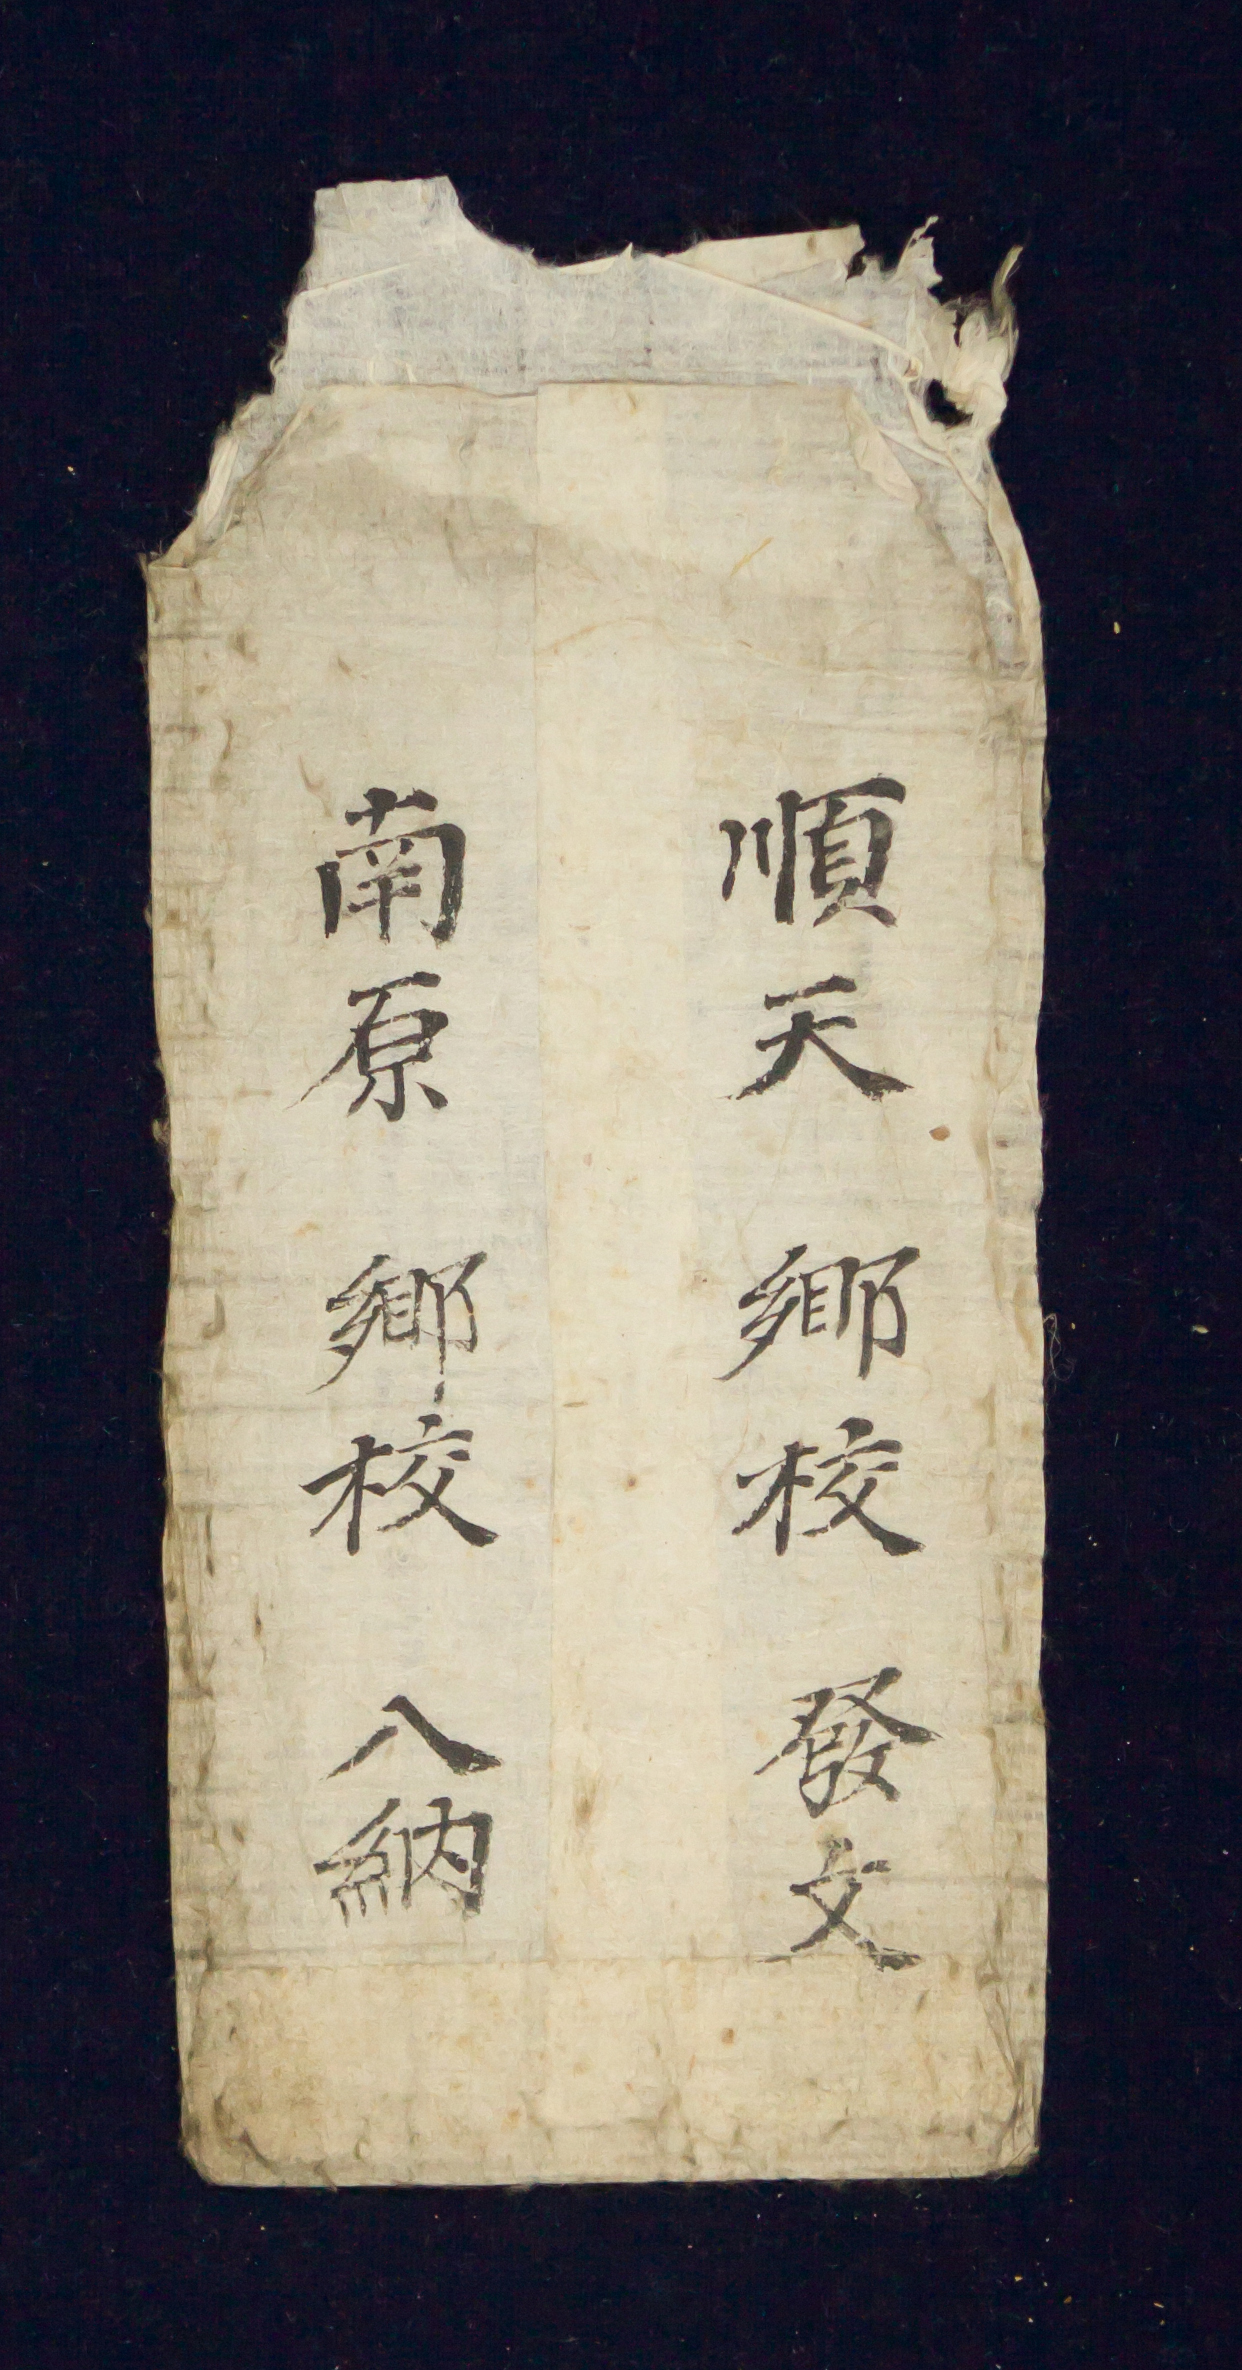 順天 鄕校 發文
南原 鄕校 入納